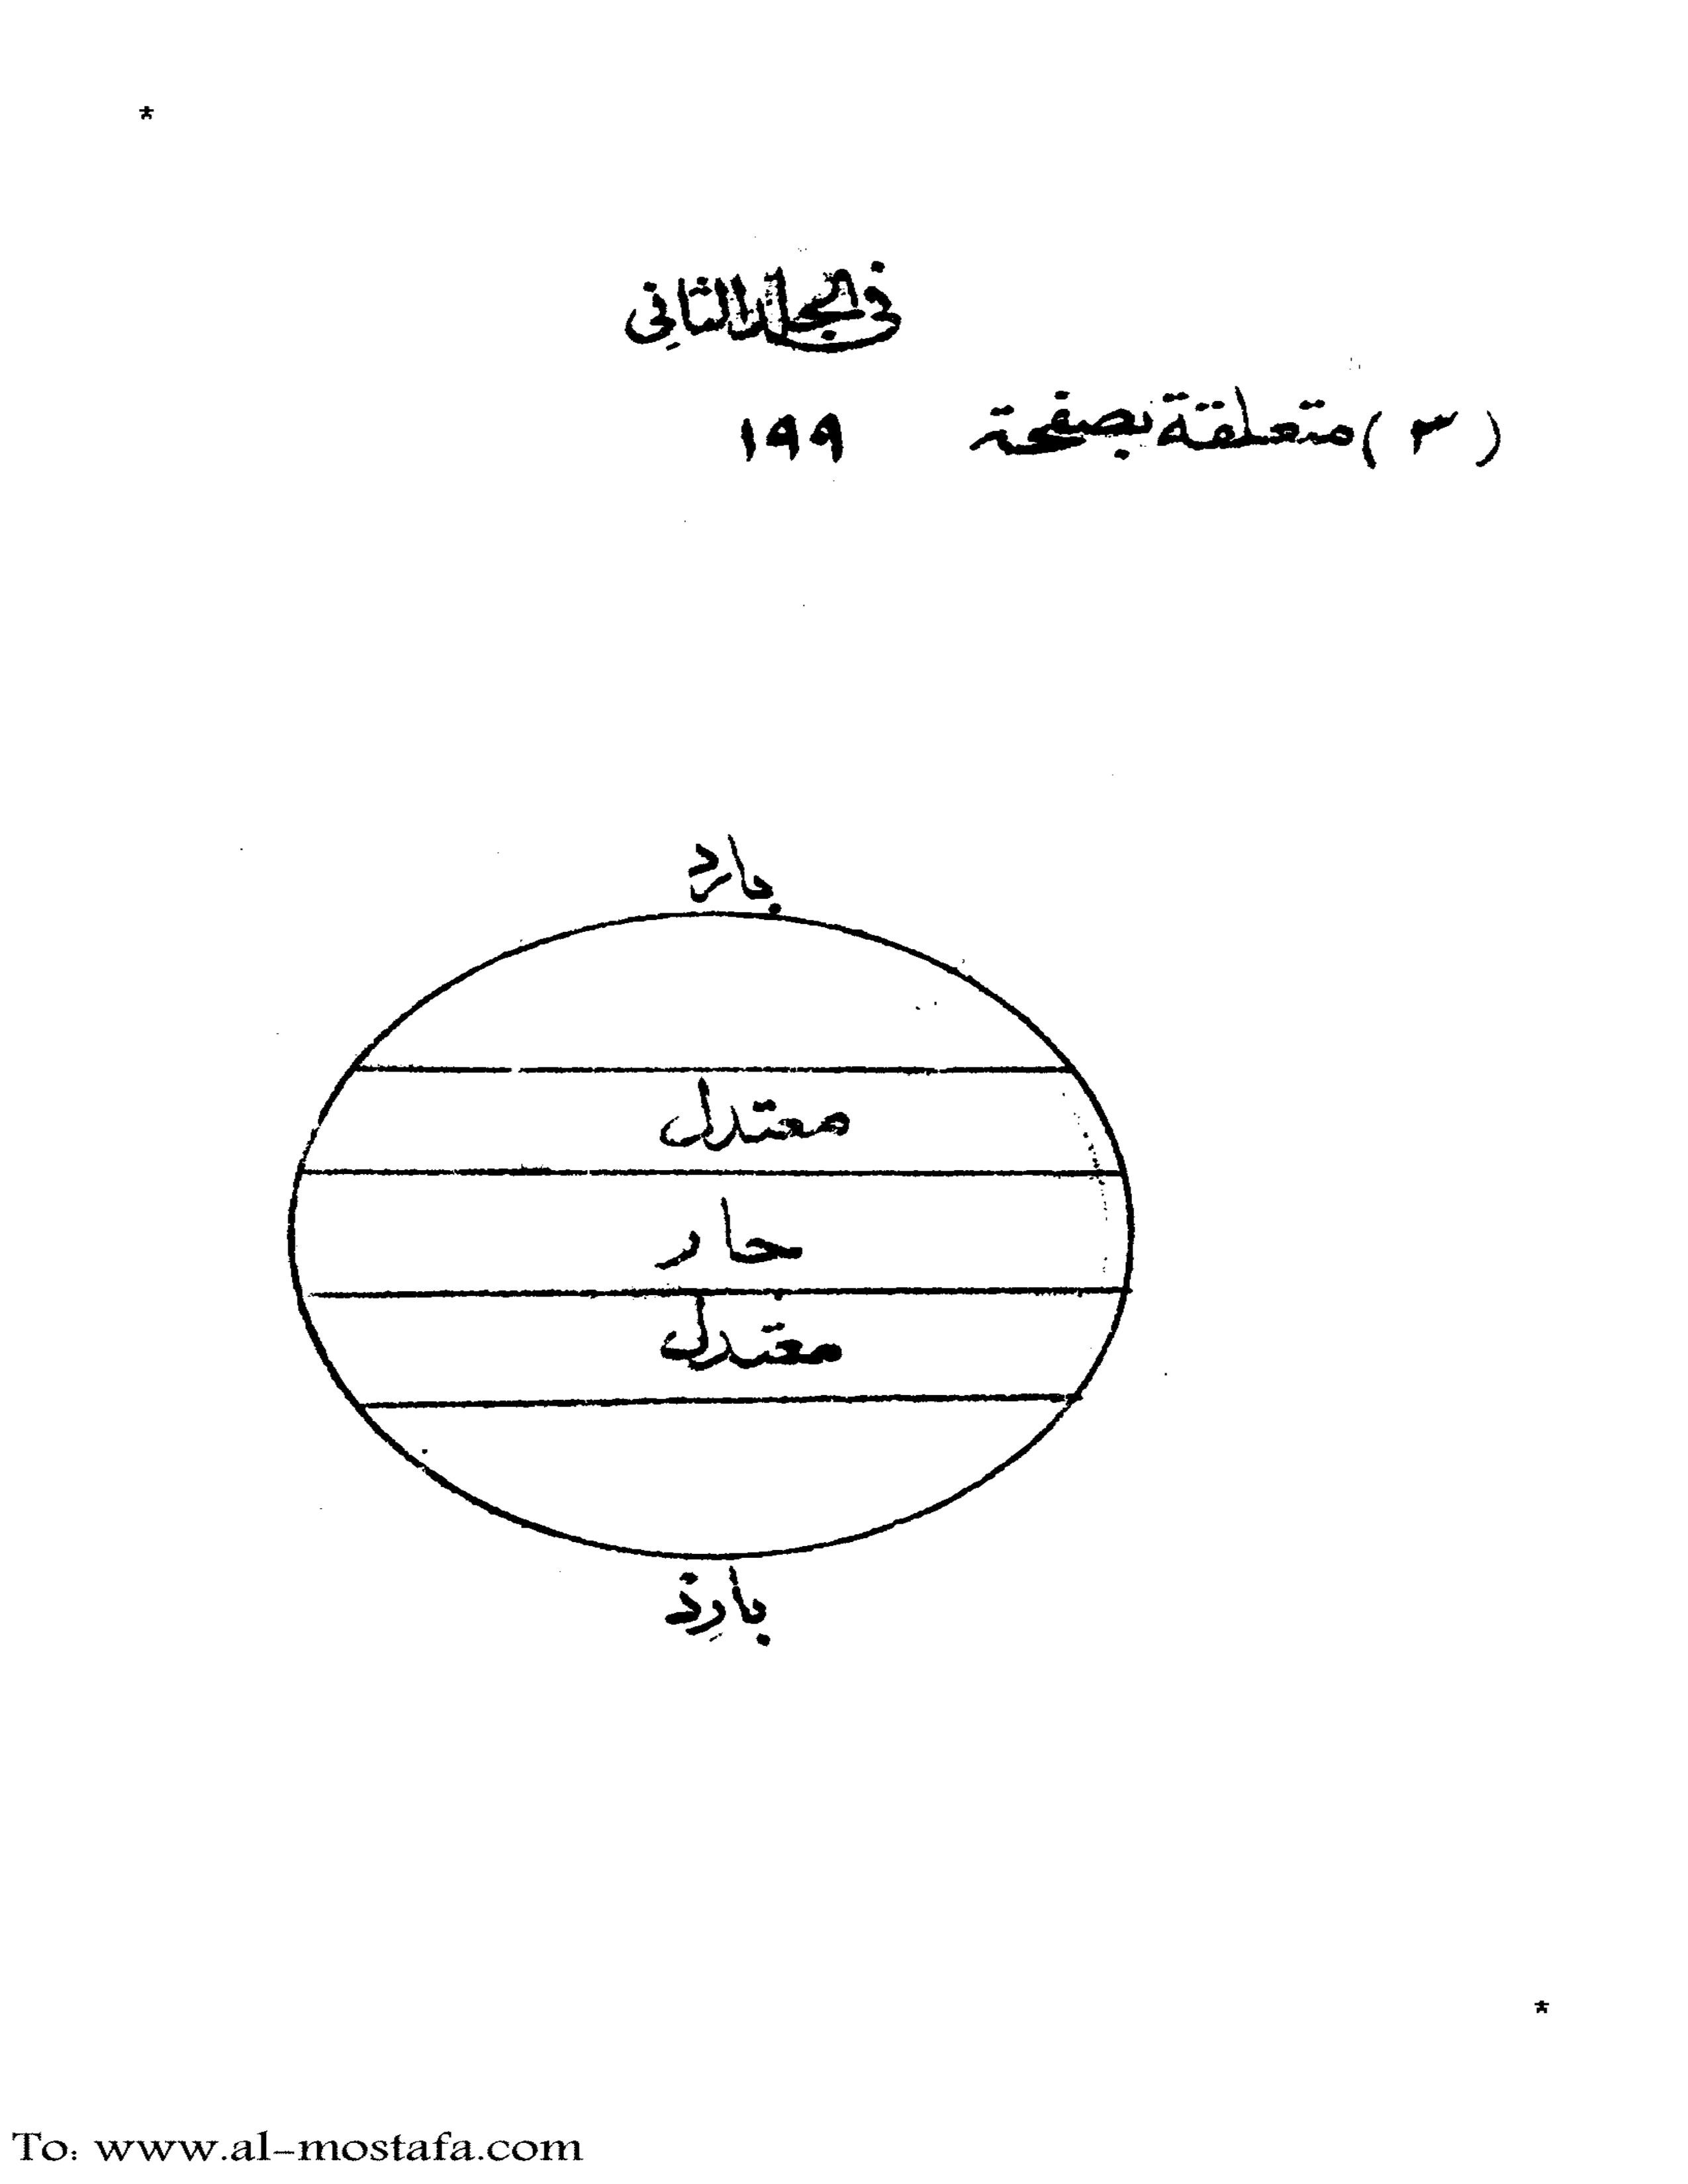 *
في المجلد الثاني
(٣) متعلقة بصفحة ١٩٩
بارد
معتدل
حار
معتدل
بارد
*
To: www.al-mostafa.com